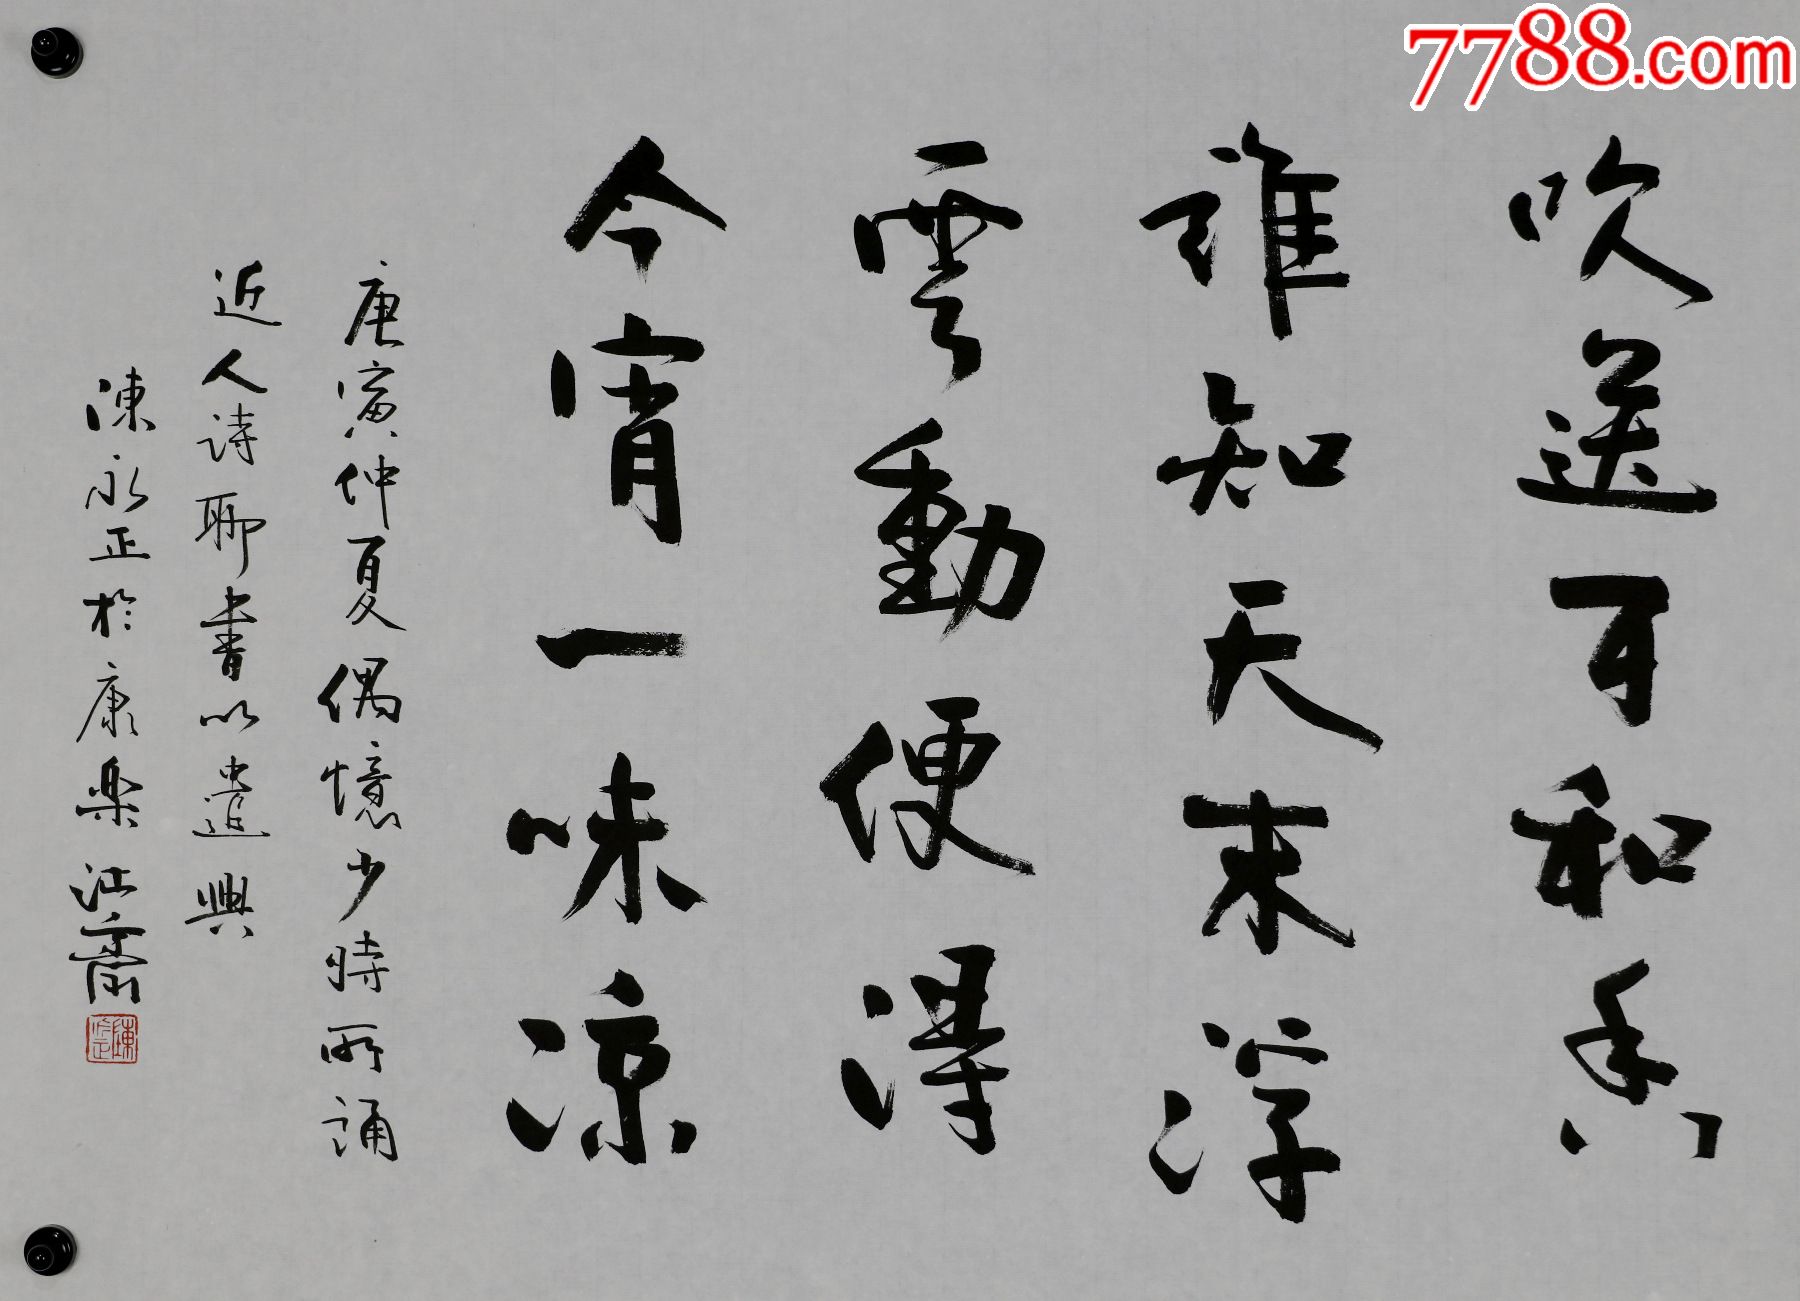 7788.com
吹送可和香
誰知天末浮
雲動便得
今宵一味凉
庚寅仲夏偶憶少時所誦
近人詩聊書以遣興
陳永正於康楽沚齋